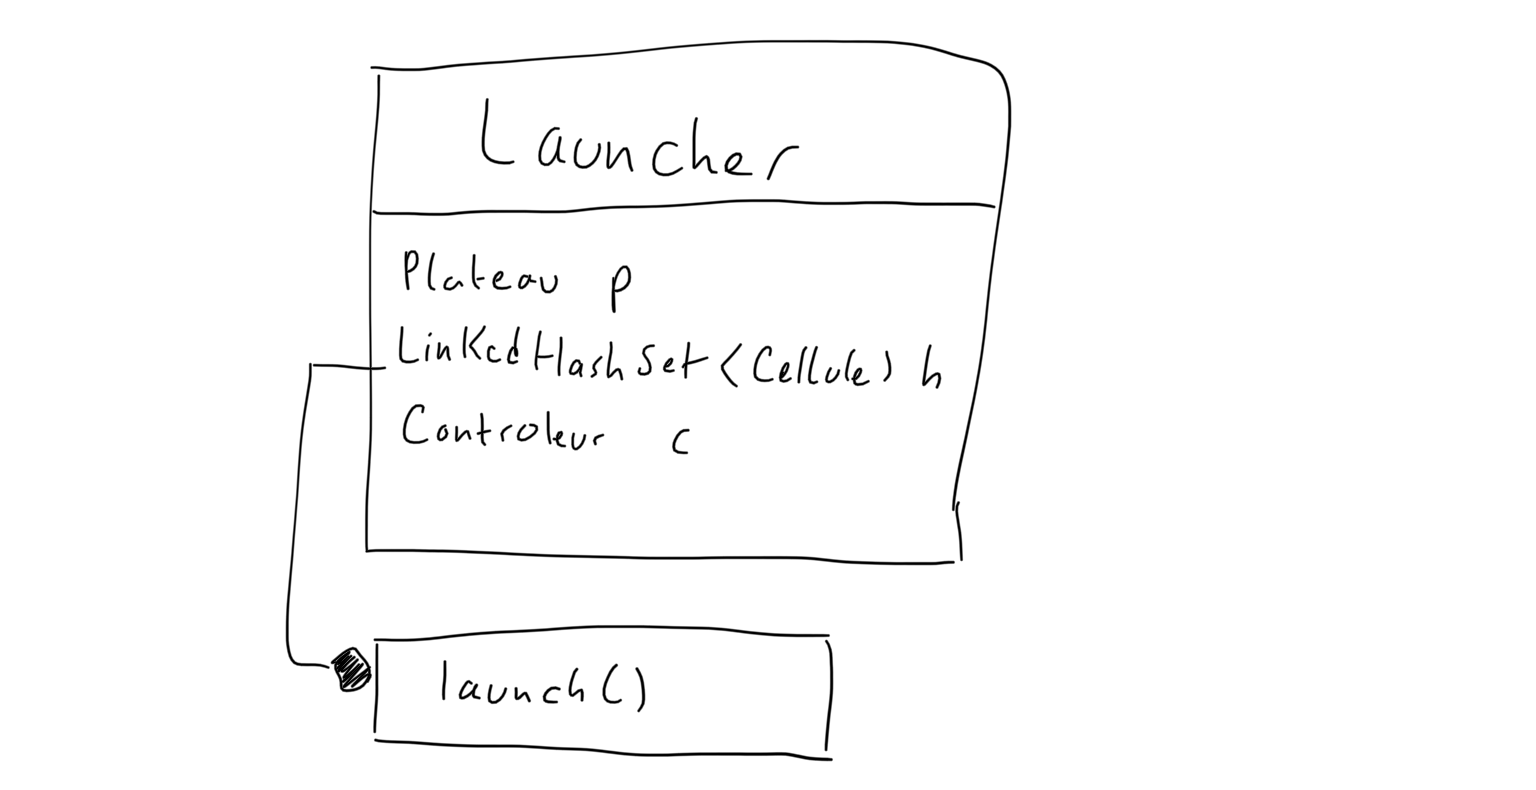 Launcher
Plateau p
LinkedHashSet<Cellule> h
Controleur c
launch()